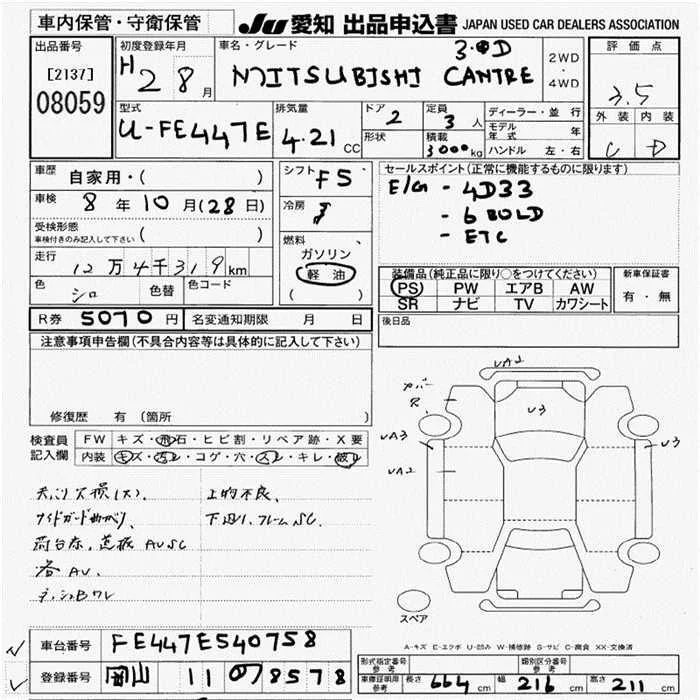 車内保管・守衛保管
JU 愛知 出品申込書 JAPAN USED CAR DEALERS ASSOCIATION
出品番号
[2137]
08059
初度登録年月
H 2 8月
車名・グレード
3.0D
MITSUBISHI CANTRE
2WD・4WD
評価点
3.5
外装 内装
C D
型式
U-FE447E
排気量
4.21 CC
ドア 2
形状
定員 3人
積載 3000kg
ディーラー・並行
モデル年式 年
ハンドル 左・右
車歴 自家用・( )
車検 8年10月(28日)
受検形態 ( )
車検付きのみ記入して下さい
走行 12万4千319km
色 シロ 色替 色コード
シフト F5
冷房
燃料
ガソリン
軽油
( )
セールスポイント(正常に機能するものに限ります)
E/G - 4D33
- 6 BOLD
- ETC
装備品(純正品に限り○をつけてください)
PS PW エアB AW
SR ナビ TV カワシート
新車保証書
有・無
R券 5070円 名変通知期限 月 日
後日品
注意事項申告欄(不具合内容等は具体的に記入して下さい)
修復歴 有 (箇所 )
検査員記入欄
FW キズ・飛石・ヒビ割・リペア跡・X要
内装 キズ・汚レ・コゲ・穴・スレ・キレ・破レ
上的不良、
サイドガード曲がり、
下廻り、フレームSC、
荷台床、煽板 AUSC
各AU、
UA2
カバー
R、
U3
UA3
U3
UA2
スペア
A-キズ E-エクボ U-凹み W-補修跡 S-サビ C-腐食 XX-交換済
車台番号 FE447E540758
登録番号 岡山 11 の 8578
形式指定番号 参考
類別区分番号 参考
車庫証明用 参考 長さ 664cm 幅 216cm 高さ 211cm